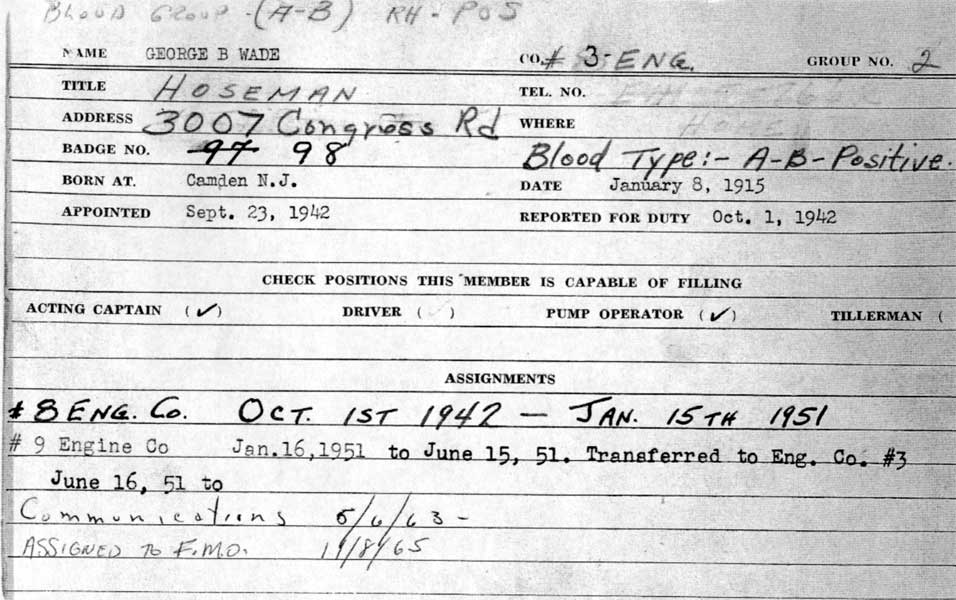 BLOOD GROUP - (A-B) RH - POS
NAME GEORGE B WADE CO. # 3-ENG. GROUP NO. 2
TITLE HOSEMAN TEL. NO.
ADDRESS 3007 Congress Rd WHERE HOME
BADGE NO. 97 98 Blood Type:- A-B-Positive.
BORN AT. Camden N.J. DATE January 8, 1915
APPOINTED Sept. 23, 1942 REPORTED FOR DUTY Oct. 1, 1942
CHECK POSITIONS THIS MEMBER IS CAPABLE OF FILLING
ACTING CAPTAIN (✓) DRIVER (✓) PUMP OPERATOR (✓) TILLERMAN (
ASSIGNMENTS
# 8 ENG. Co. OCT. 1ST 1942 — JAN. 15TH 1951
# 9 Engine Co Jan.16,1951 to June 15, 51. Transferred to Eng. Co. #3
June 16, 51 to
Communications 5/6/63 -
ASSIGNED TO F.M.O.